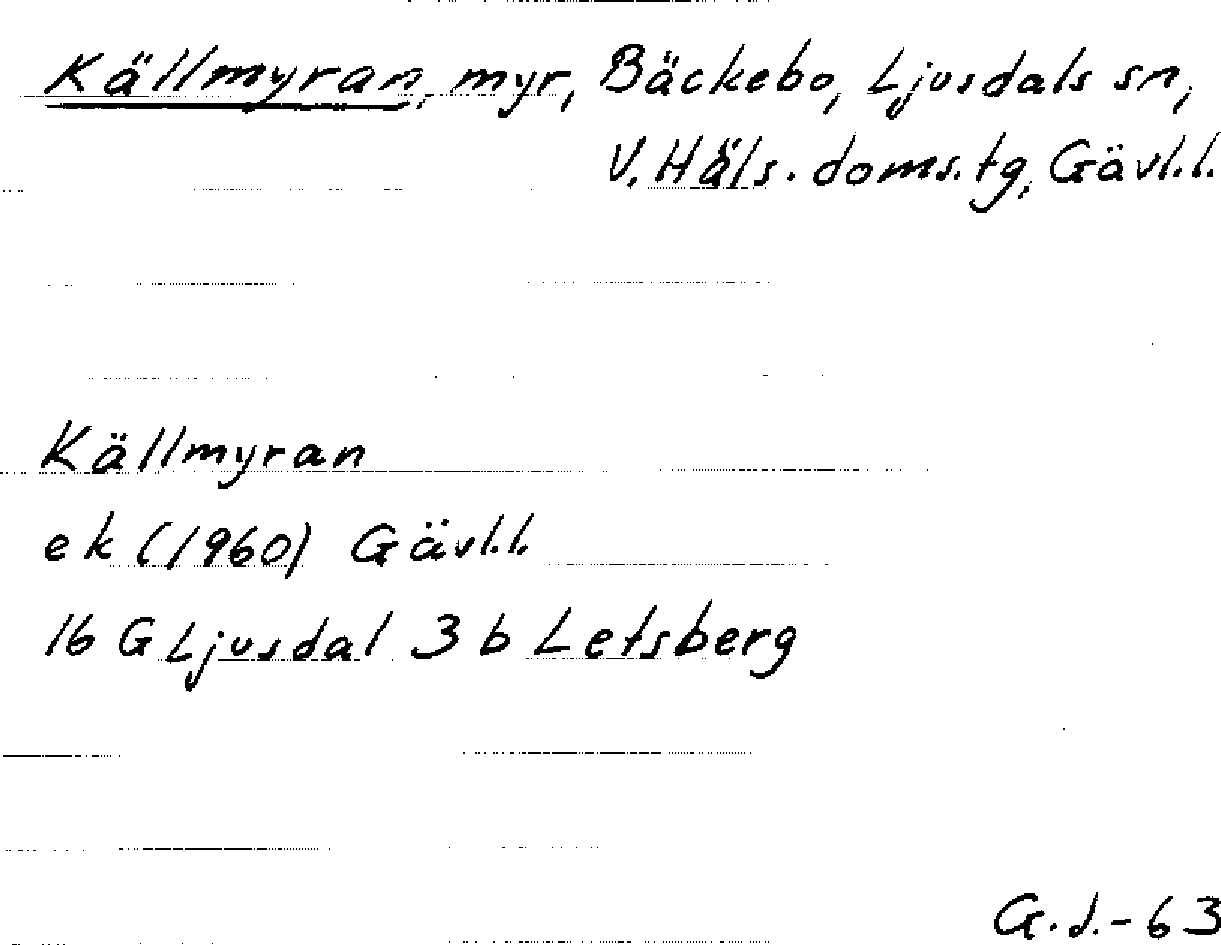 Källmyran, myr, Bäckebo, Ljusdals sn,
V. Häls. doms.tg, Gävl.l.
Källmyran
ek (1960) Gävl.l.
16 G Ljusdal 3 b Letsberg
G.J.-63